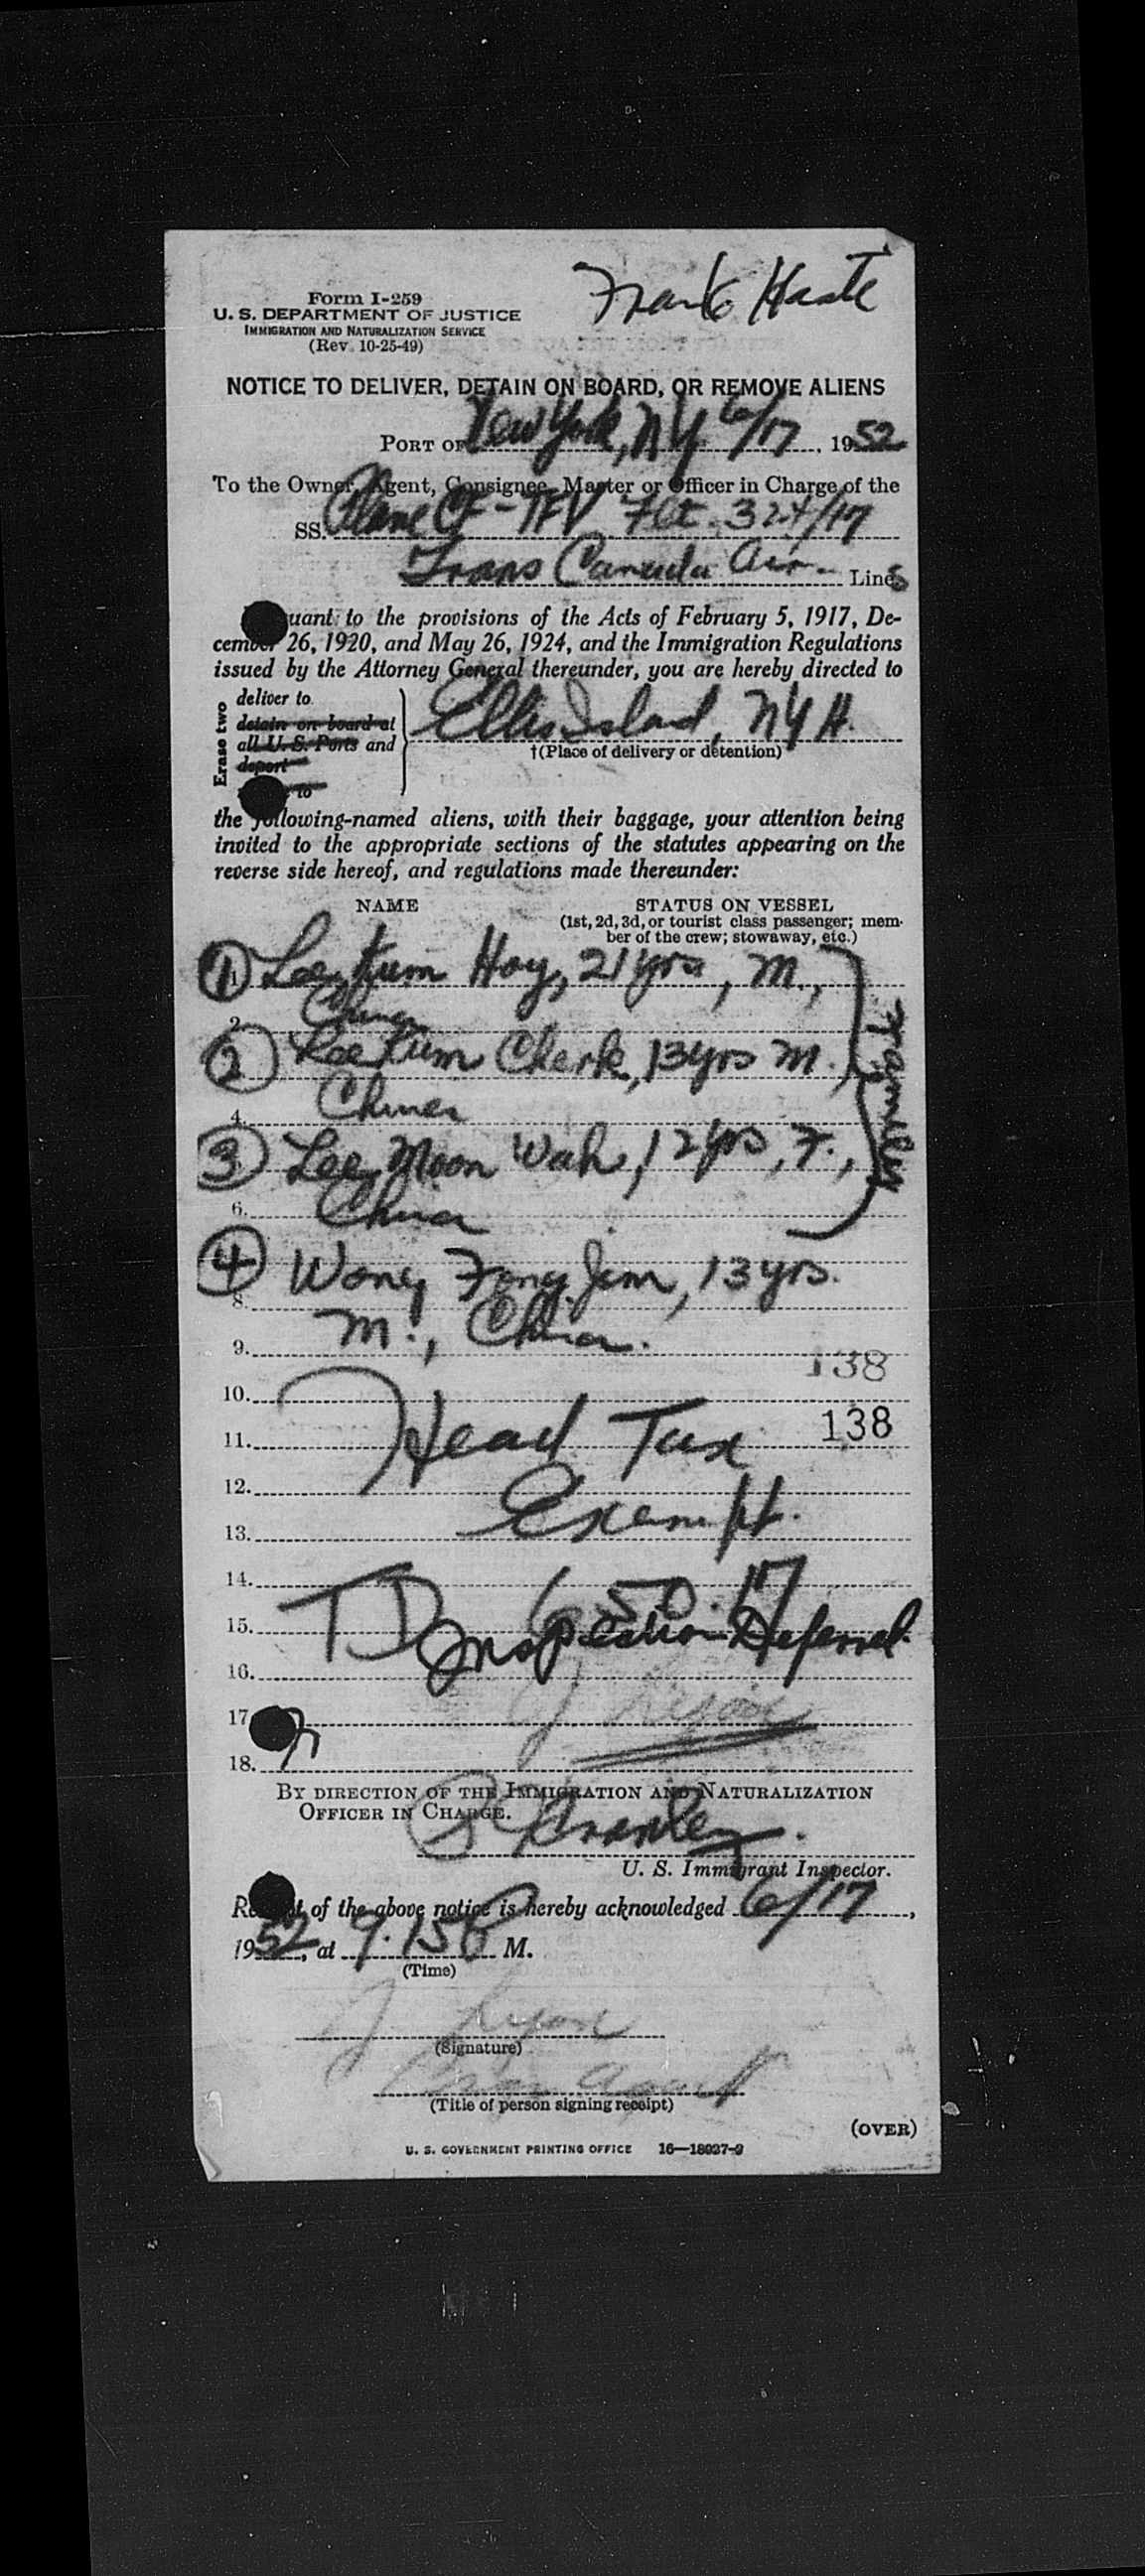 Frank Haste
Form I-259
U. S. DEPARTMENT OF JUSTICE
IMMIGRATION AND NATURALIZATION SERVICE
(Rev. 10-25-49)
NOTICE TO DELIVER, DETAIN ON BOARD, OR REMOVE ALIENS
PORT OF New York, NY 6/17, 1952
To the Owner, Agent, Consignee, Master or Officer in Charge of the
SS. Plane CF-TFV Flt. 324/17
Trans Canada Air Lines
uant to the provisions of the Acts of February 5, 1917, De-
cember 26, 1920, and May 26, 1924, and the Immigration Regulations
issued by the Attorney General thereunder, you are hereby directed to
Erase two
deliver to
detain on board at
all U. S. Ports and
deport
to
Ellis Island, NYH.
†(Place of delivery or detention)
the following-named aliens, with their baggage, your attention being
invited to the appropriate sections of the statutes appearing on the
reverse side hereof, and regulations made thereunder:
NAME STATUS ON VESSEL
(1st, 2d, 3d, or tourist class passenger; mem-
ber of the crew; stowaway, etc.)
1 Lee, Kum Hoy, 21 yrs, M.,
2. China
2 Lee Kum Cherk, 13 yrs M.,
4. China
3 Lee, Moon Wah, 12 yrs, F.,
6. China
Family
4 Wong Fong Jim, 13 yrs.
8.
M., China.
9.
138
10.
11. Head Tax 138
12.
13. Exempt.
14.
15. TD 6.50.17
Inspection Deferred.
16.
17. J Lyon
18.
BY DIRECTION OF THE IMMIGRATION AND NATURALIZATION
OFFICER IN CHARGE.
U. S. Immigrant Inspector.
of the above notice is hereby acknowledged 6/17,
1952, at 9.15 P M.
(Time)
J Lyon
(Signature)
Agent
(Title of person signing receipt)
(OVER)
U. S. GOVERNMENT PRINTING OFFICE 16—18037-2